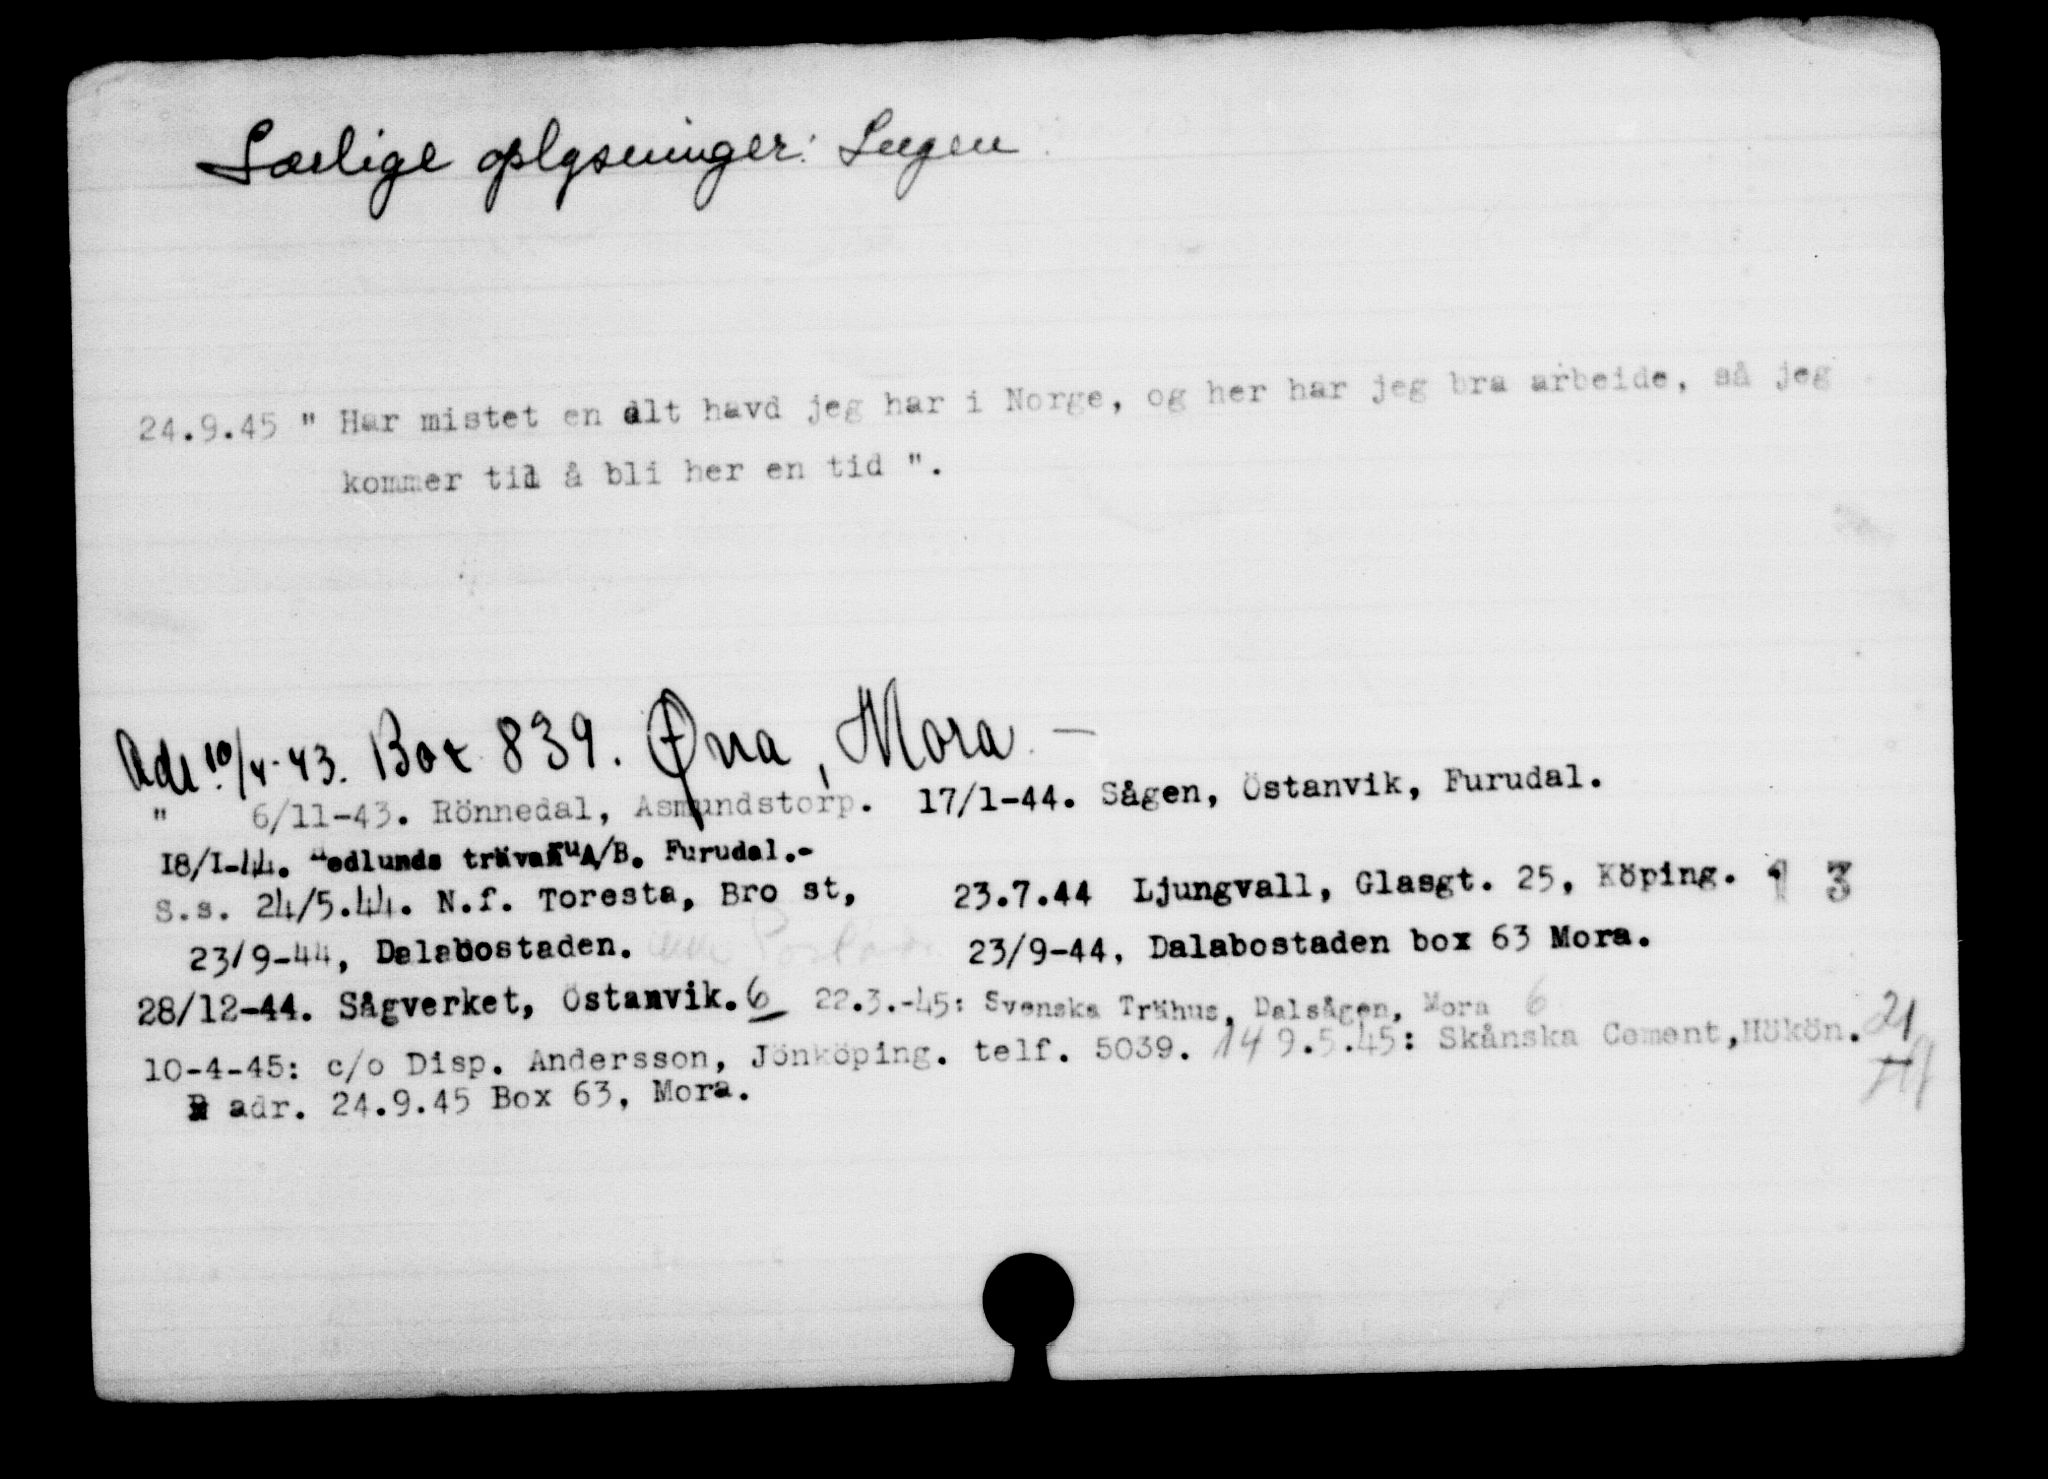 Særlige oplysninger: Ingen
24.9.45 " Har mistet en alt havd jeg har i Norge, og her har jeg bra arbeide, så jeg
kommer til å bli her en tid ".
Adr. 10/4-43. Box 839. Øna, Mora. —
" 6/11-43. Rönnedal, Asmundstorp. 17/1-44. Sågen, Östanvik, Furudal.
18/1-44. Hedlunds trävaru A/B. Furudal.-
S.s. 24/5.44. N.f. Toresta, Bro st, 23.7.44 Ljungvall, Glasgt. 25, Köping. 1 3
23/9-44, Dalabostaden. 23/9-44, Dalabostaden box 63 Mora.
28/12-44. Sågverket, Östanvik. 6 22.3.-45: Svenska Trähus, Dalsågen, Mora 6
10-4-45: c/o Disp. Andersson, Jönköping. telf. 5039. 14 9.5.45: Skånska Cement, Hökön. 21
adr. 24.9.45 Box 63, Mora.